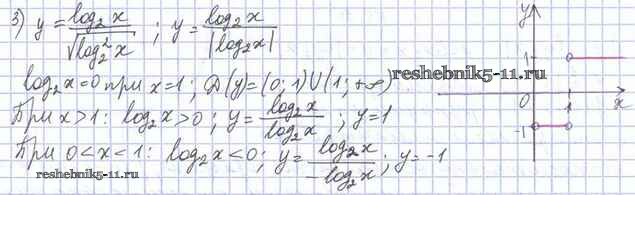 3) y = log₂x / √(log₂²x) ; y = log₂x / |log₂x|
log₂x=0 при x=1; D(y)=(0; 1)∪(1; +∞)
При x>1: log₂x>0; y = log₂x / log₂x ; y=1
При 0<x<1: log₂x<0; y = log₂x / -log₂x ; y=-1
reshebnik5-11.ru
reshebnik5-11.ru
y
1
0
1
x
-1